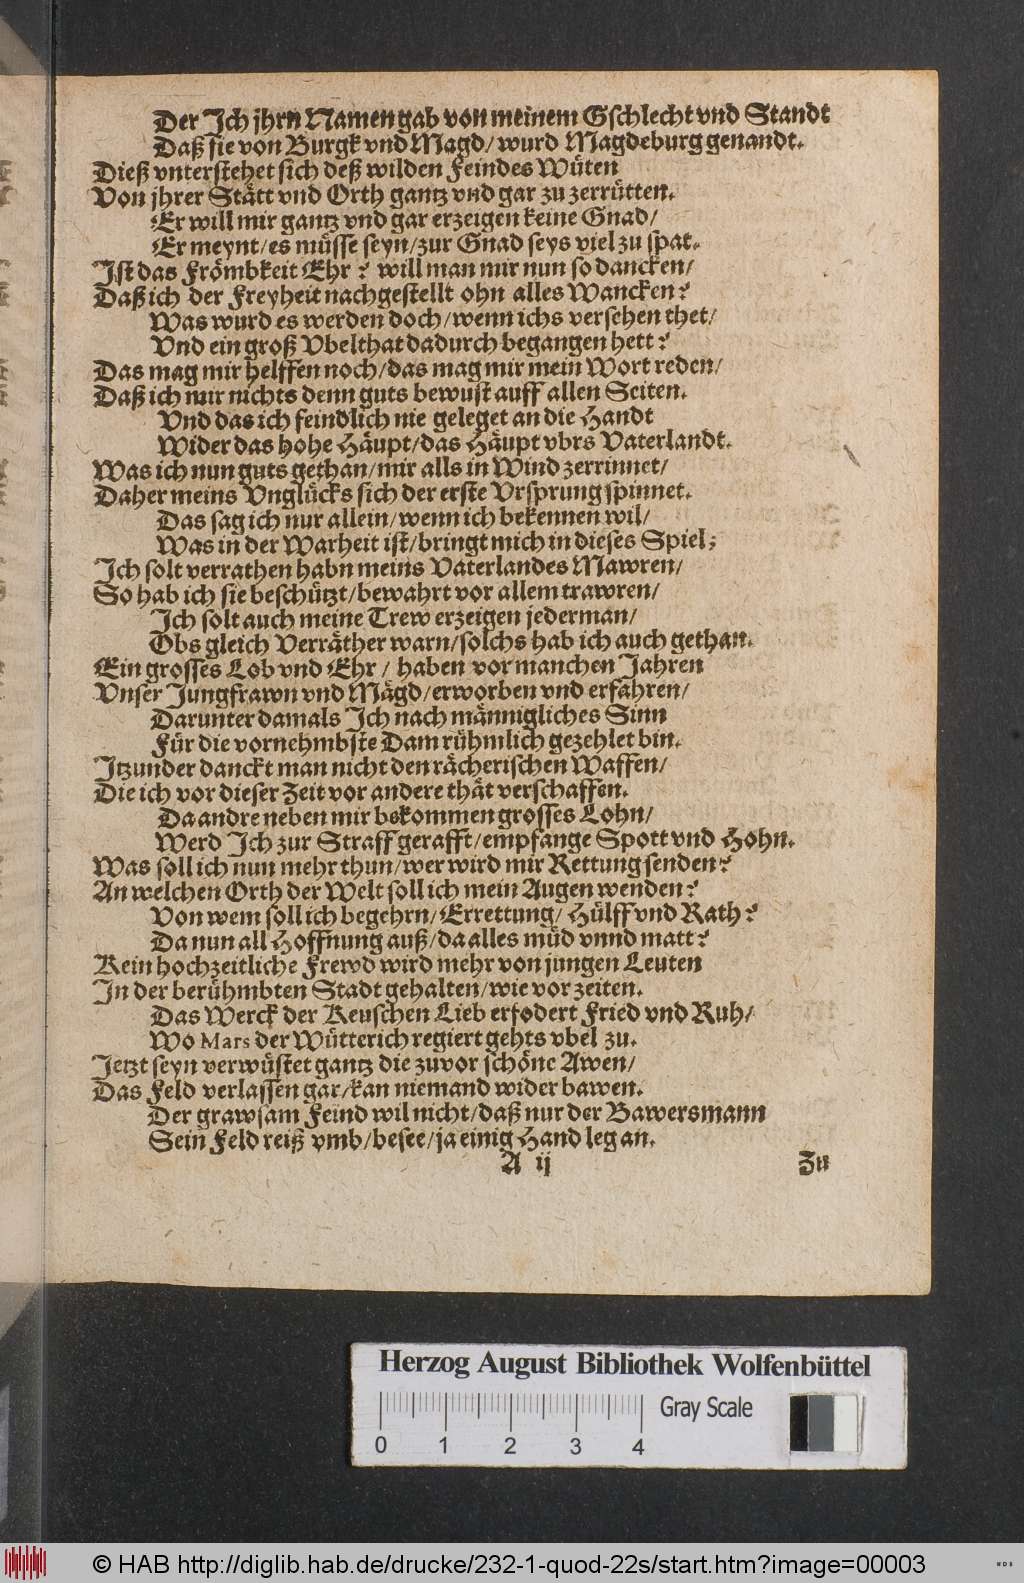 Der Ich jhrn Namen gab von meinem Gschlecht vnd Standt
Daß sie von Burgk vnd Magd/ wurd Magdeburg genandt.
Dieß vnterstehet sich deß wilden Feindes Wüten
Von jhrer Stätt vnd Orth gantz vnd gar zu zerrütten.
Er will mir gantz vnd gar erzeigen keine Gnad/
Er meynt/ es müsse seyn/ zur Gnad seys viel zu spat.
Ist das Frömbkeit Ehr? will man mir nun so dancken/
Daß ich der Freyheit nachgestellt ohn alles Wancken?
Was wurd es werden doch/ wenn ichs versehen thet/
Vnd ein groß Vbelthat dadurch begangen hett?
Das mag mir helffen noch/ das mag mir mein Wort reden/
Daß ich mir nichts denn guts bewust auff allen Seiten.
Vnd das ich feindlich nie geleget an die Handt
Wider das hohe Häupt/ das Häupt vbrs Vaterlandt.
Was ich nun guts gethan/ mir alls in Wind zerrinnet/
Daher meins Vnglücks sich der erste Vrsprung spinnet.
Das sag ich nur allein/ wenn ich bekennen wil/
Was in der Warheit ist/ bringt mich in dieses Spiel;
Ich solt verrathen habn meins Vaterlandes Mawren/
So hab ich sie beschützt/ bewahrt vor allem trawren/
Ich solt auch meine Trew erzeigen jederman/
Obs gleich Verräther warn/ solchs hab ich auch gethan.
Ein grosses Lob vnd Ehr / haben vor manchen Jahren
Vnser Jungfrawn vnd Mägd/ erworben vnd erfahren/
Darunter damals Ich nach männigliches Sinn
Für die vornehmbste Dam rühmlich gezehlet bin.
Itzunder danckt man nicht den rächerischen Waffen/
Die ich vor dieser Zeit vor andere thät verschaffen.
Da andre neben mir bekommen grosses Lohn/
Werd Ich zur Straff gerafft/ empfange Spott vnd Hohn.
Was soll ich nun mehr thun/ wer wird mir Rettung senden?
An welchen Orth der Welt soll ich mein Augen wenden?
Von wem soll ich begehrn/ Errettung/ Hülff vnd Rath?
Da nun all Hoffnung auß/ da alles müd vnnd matt?
Kein hochzeitliche Frewd wird mehr von jungen Leuten
In der berühmbten Stadt gehalten/ wie vor zeiten.
Das Werck der Keuschen Lieb erfodert Fried vnd Ruh/
Wo Mars der Wütterich regiert gehts vbel zu.
Jetzt seyn verwüstet gantz die zuvor schöne Awen/
Das Feld verlassen gar/ kan niemand wider bawen.
Der grawsam Feind wil nicht/ daß nur der Bawersmann
Sein Feld reiß vmb/ besee/ ja einig Hand leg an.
A ij Zu
Herzog August Bibliothek Wolfenbüttel
Gray Scale
0 1 2 3 4
© HAB http://diglib.hab.de/drucke/232-1-quod-22s/start.htm?image=00003